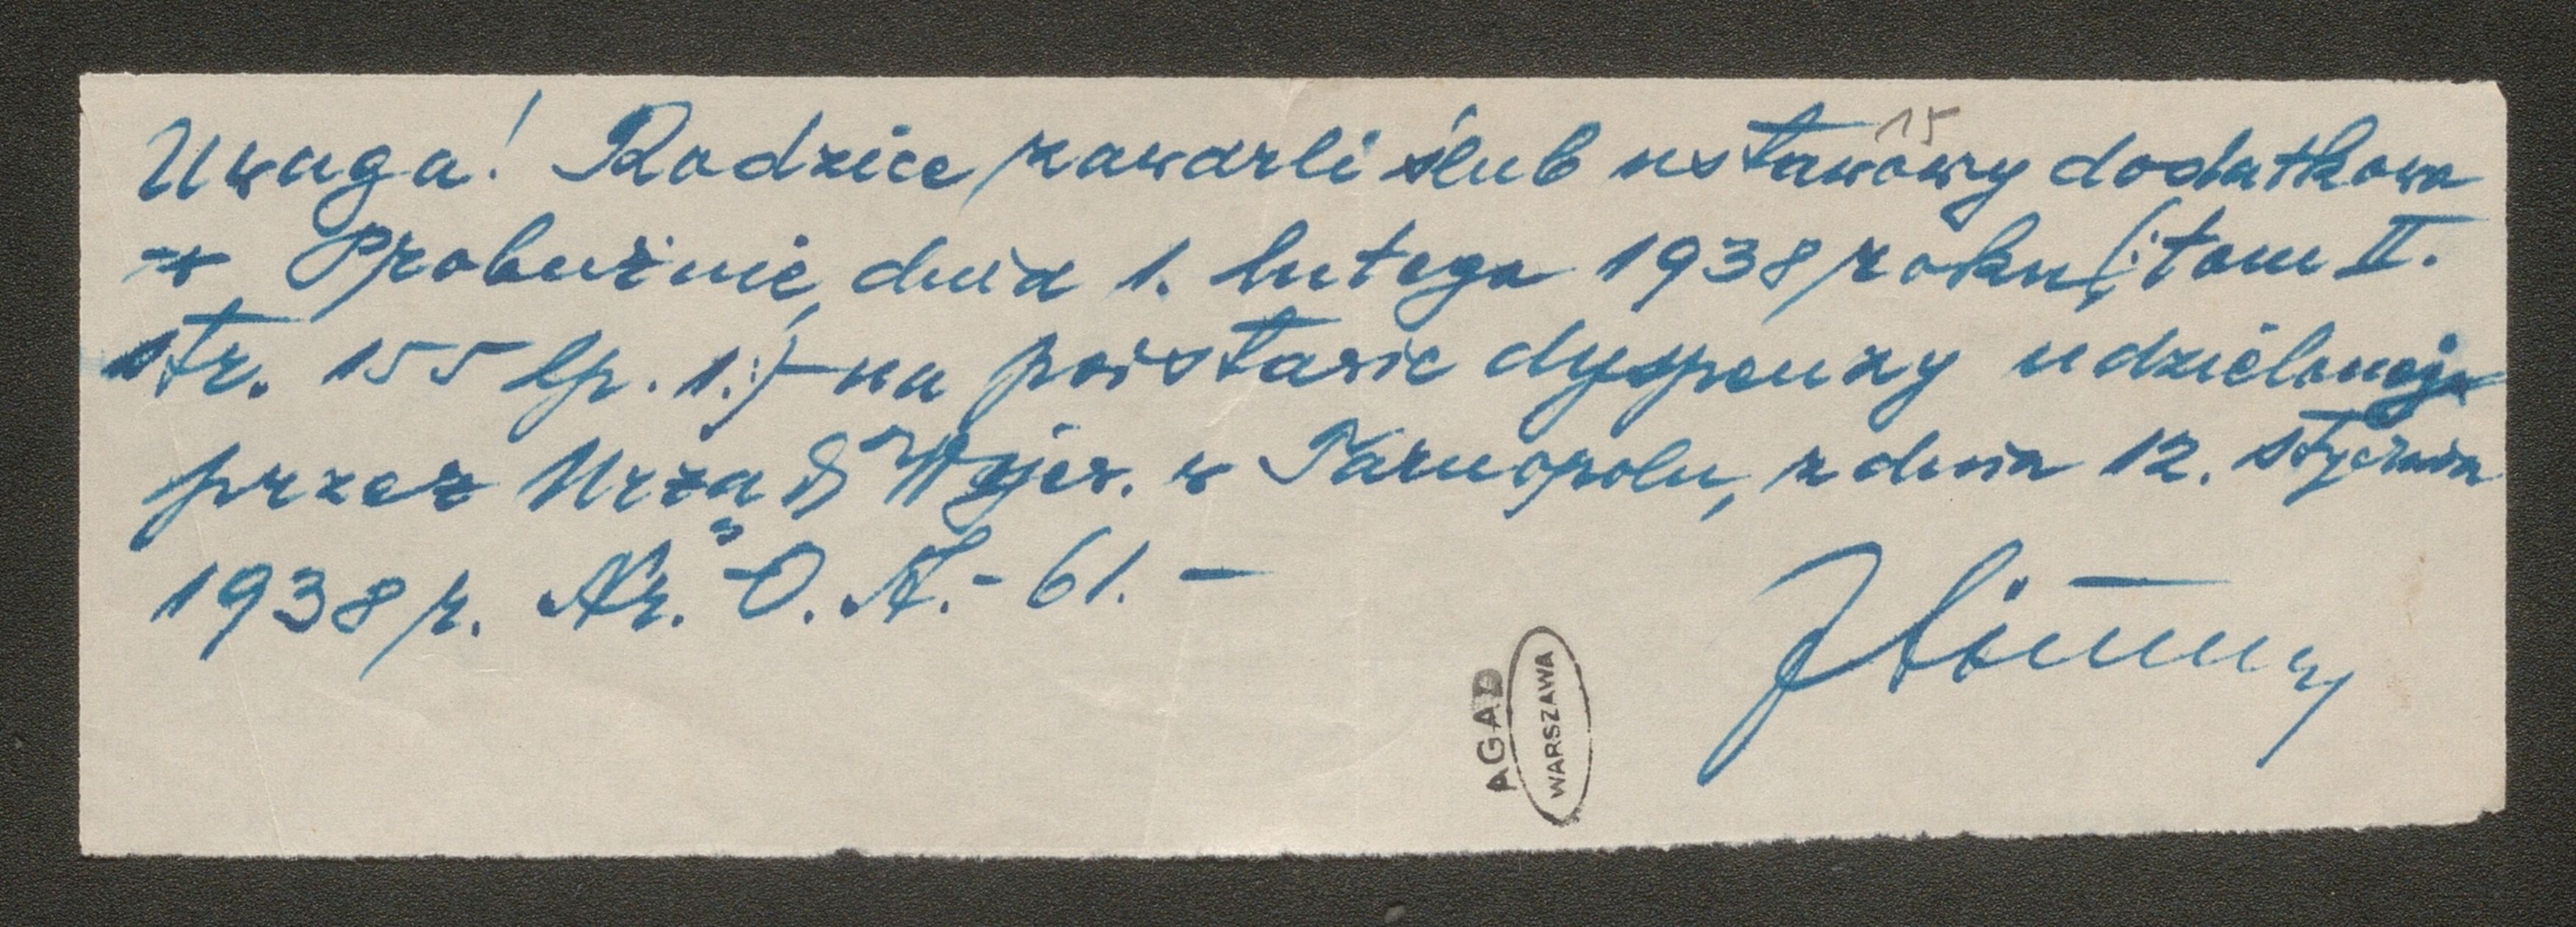 15
Uwaga! Rodzice zawarli ślub ustawowy dodatkowo
w Probużnie, dnia 1. lutego 1938 roku (: tom II.
str. 155 lp. 1.:) na podstawie dyspenzy udzielonej
przez Urząd Wojew. w Tarnopolu, z dnia 12. stycznia
1938 r. Nr. O. A. - 61. -
AGAD
WARSZAWA